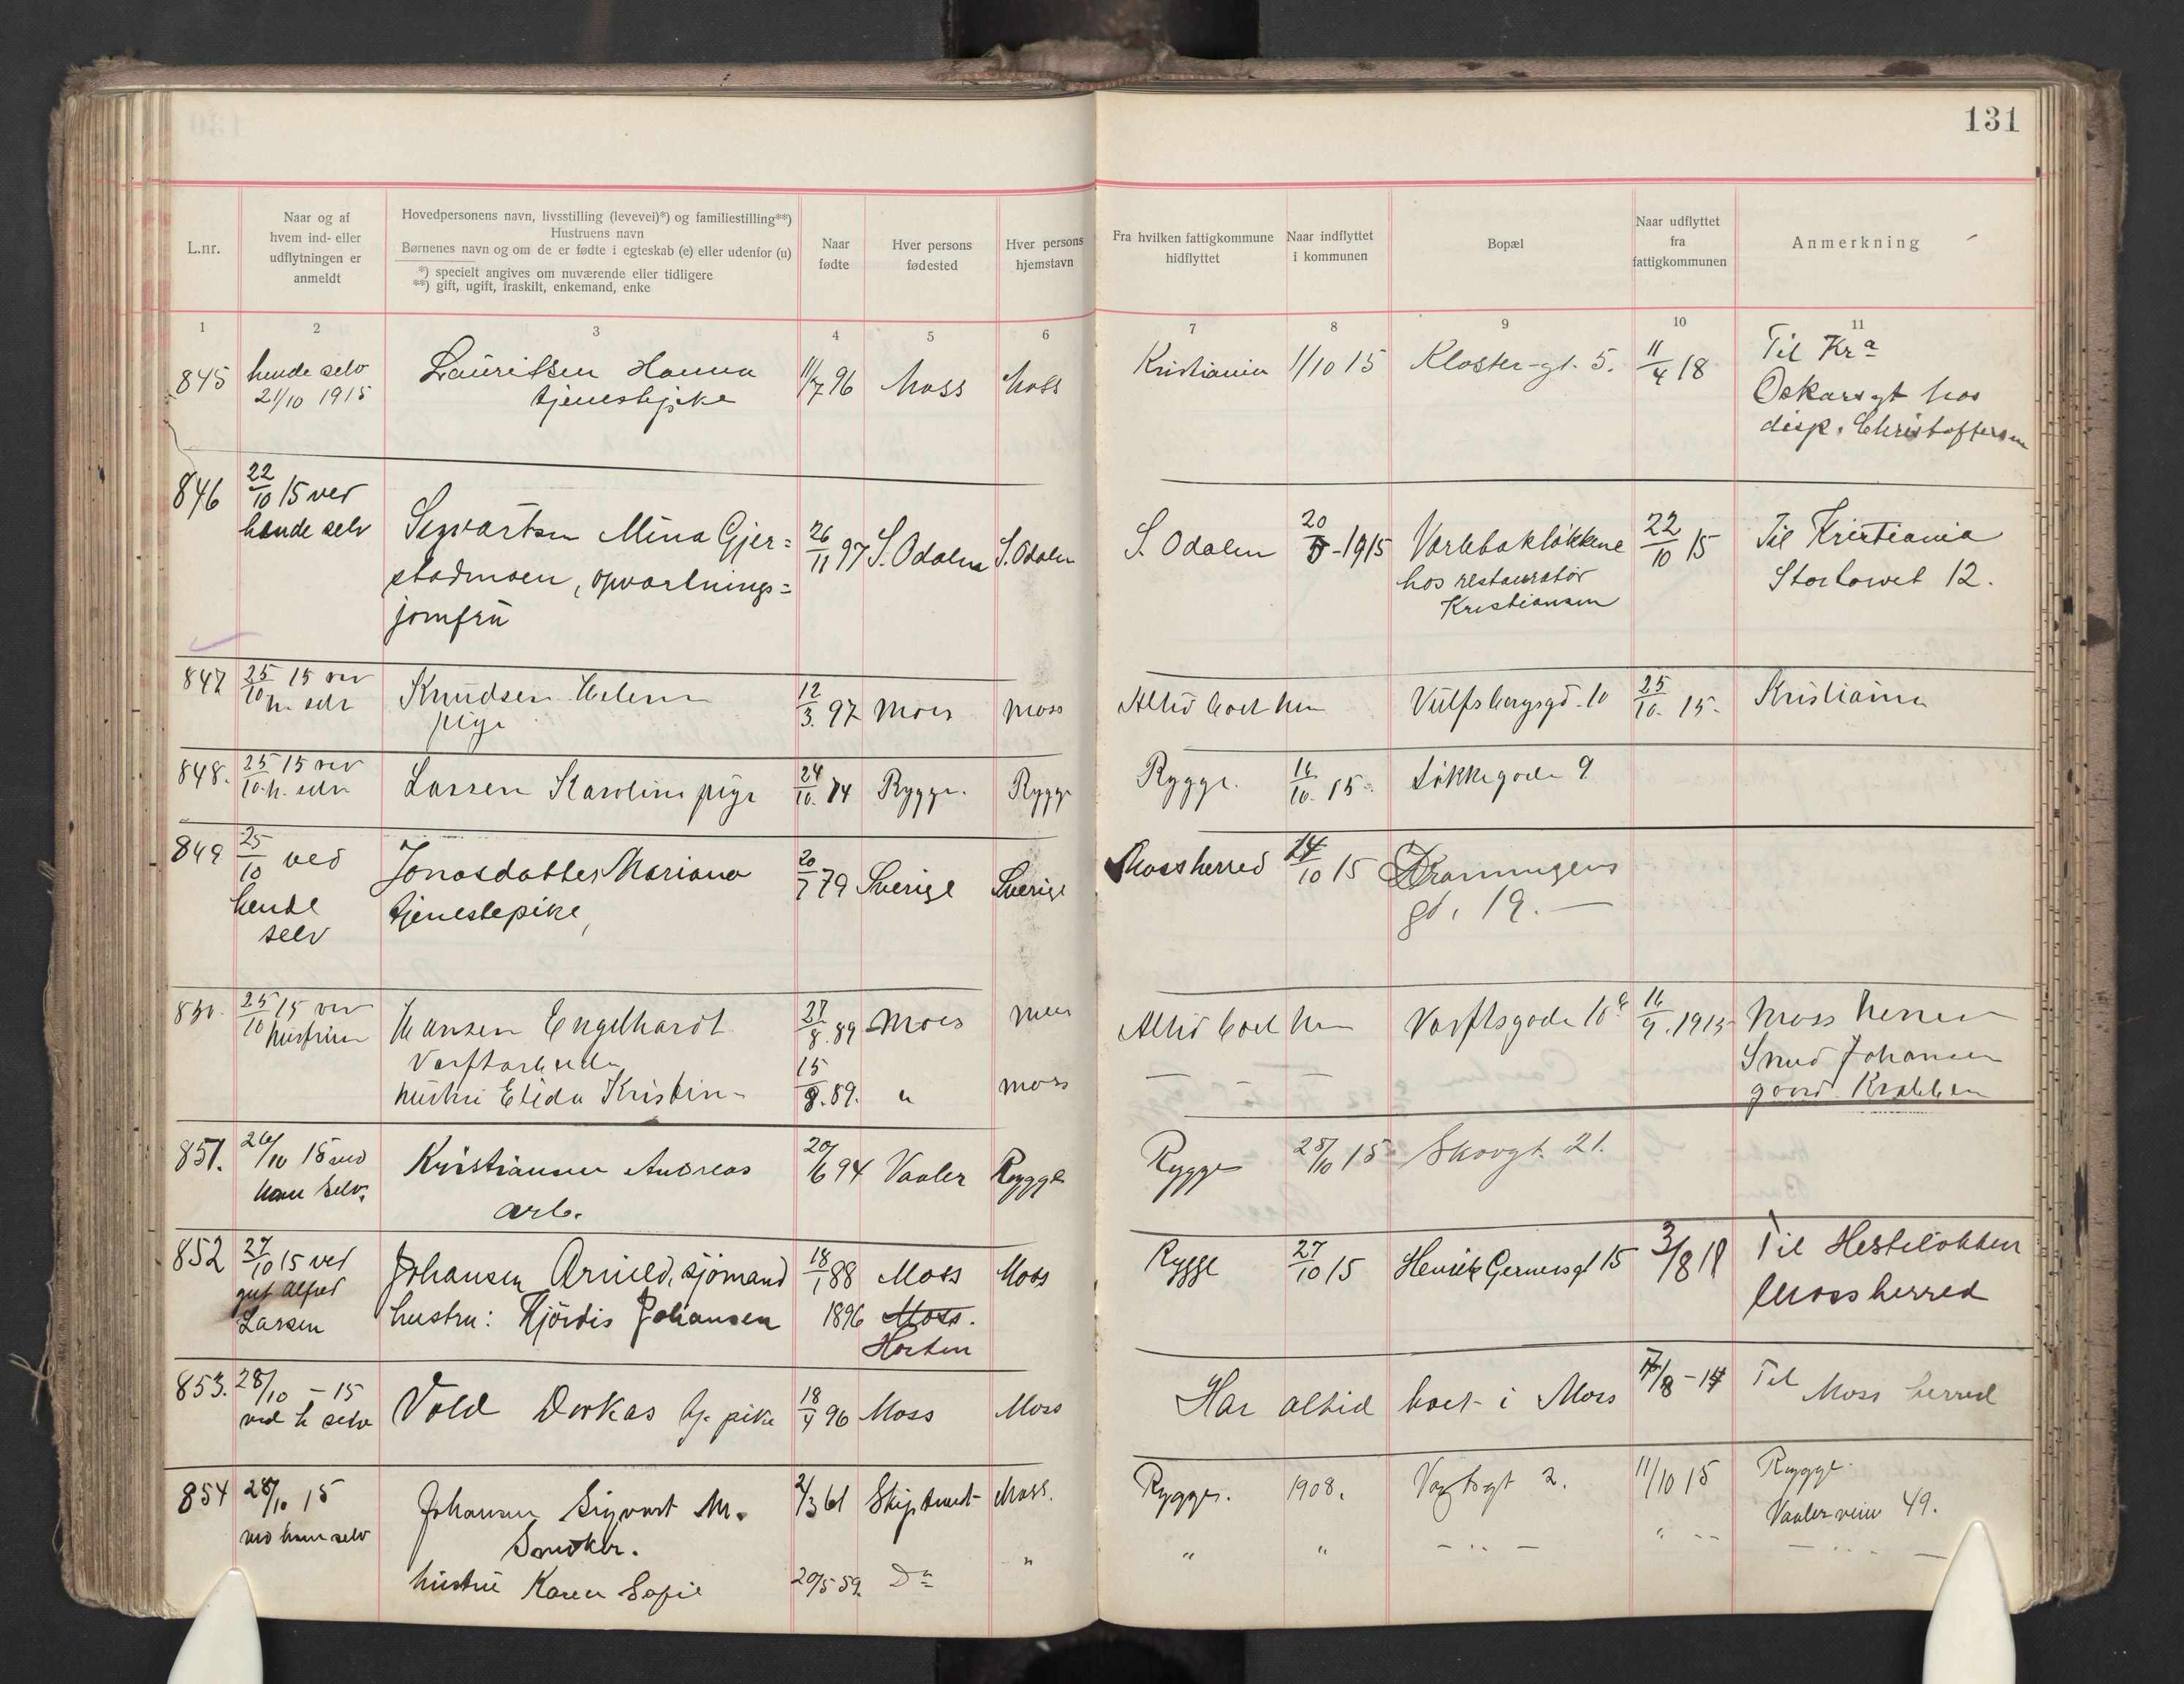 131
L.nr.
Naar og af
hvem ind- eller
udflytningen er
anmeldt
Hovedpersonens navn, livsstilling (levevei)*) og familiestilling**)
Hustruens navn
Børnenes navn og om de er fødte i egteskab (e) eller udenfor (u)
*) specielt angives om nuværende eller tidligere
**) gift, ugift, fraskilt, enkemand, enke
Naar
fødte
Hver persons
fødested
Hver persons
hjemstavn
Fra hvilken fattigkommune
hidflyttet
Naar indflyttet
i kommunen
Bopæl
Naar udflyttet
fra
fattigkommunen
Anmerkning
1 2 3 4 5 6 7 8 9 10 11
845 hende selv Lauritsen Hanna 11/7 96 Moss Moss Kristiania 1/10 15 Kloster-gt. 5. 11/4 18 Til Kra
21/10 1915 tjenestepike Oskarsgt hos
disp. Christoffersen
846 22/10 15 ved
hende selv Sigvartsen Mina Gjer= 26/11 97 S. Odalen S. Odalen S. Odalen 20 -1915 Varlebakløkkene 22/10 15 Til Kristiania
stadmoen, opvartnings= hos restauratør Stortorvet 12.
jomfru Kristiansen
847 25/10 15 ved
h. selv Knudsen Helena 12/3. 97 Moss Moss Altid boet her Vulfsbergsgd. 10 25/10. 15. Kristiania
pige
848. 25/10 15 ved
h. selv Larsen Karoline pige 24/10. 74 Rygge. Rygge Rygge. 16/10. 15. Løkkegade 9
849 25/10 ved Jonasdatter Mariana 20/7 79 Sverige Sverige Mossherred 24/10 15 Dronningens
hende tjenestepike, gt. 19. —
selv
850. 25/10 15 ved
hustruen Hansen Engelhardt 27/8. 89 Moss Moss Altid boet her Varftsgade 10 16/9. 1915 Moss herred
Varftarbeider Smed Johansen
hustru Elida Kristine 15/8. 89. " Moss — — — gaard Krabben
851. 26/10 15 ved Kristiansen Andreas 20/6 94 Vaaler Rygge Rygge 25/10 15 Skovgt. 21.
ham selv. arb.
852 27/10 15 ved Johansen Arnild, sjömand 18/1 88 Moss Moss Rygge 27/10 15 Henrik Gerners gt 15 3/8 18 Til Hesteløkken
gut Alfred Mossherred
Larsen hustru: Hjördis Johansen 1896 Moss.
Horten
853. 28/10 – 15 Vold Dorkas tj. pike 18/4 96 Moss Moss Har altid boet i Moss 7/8 – 17 Til Moss herred
ved h selv
854 28/10 15 Johansen Sigvart M. 2/3 61 Skiptvedt Moss. Rygge. 1908. Vogtsgt 2. 11/10 15 Rygge.
ved ham selv Snedker. Vaalerveien 49.
hustru Karen Sofie 20/5 59. Do " " " – " – " – – – " –